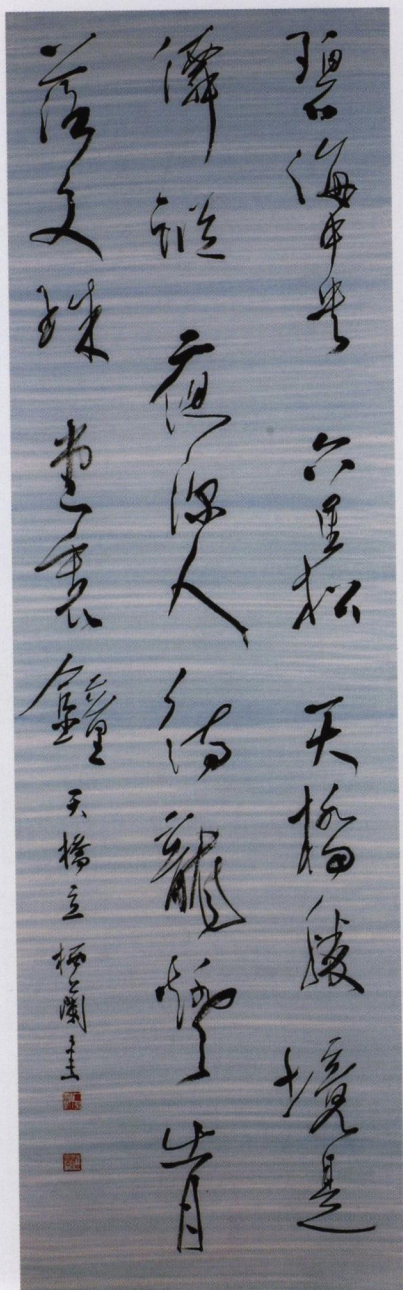 碧海中央六里松天橋勝境是
僊蹤夜深人待龍燈出月
落文珠堂裏鐘天橋立栖蘭